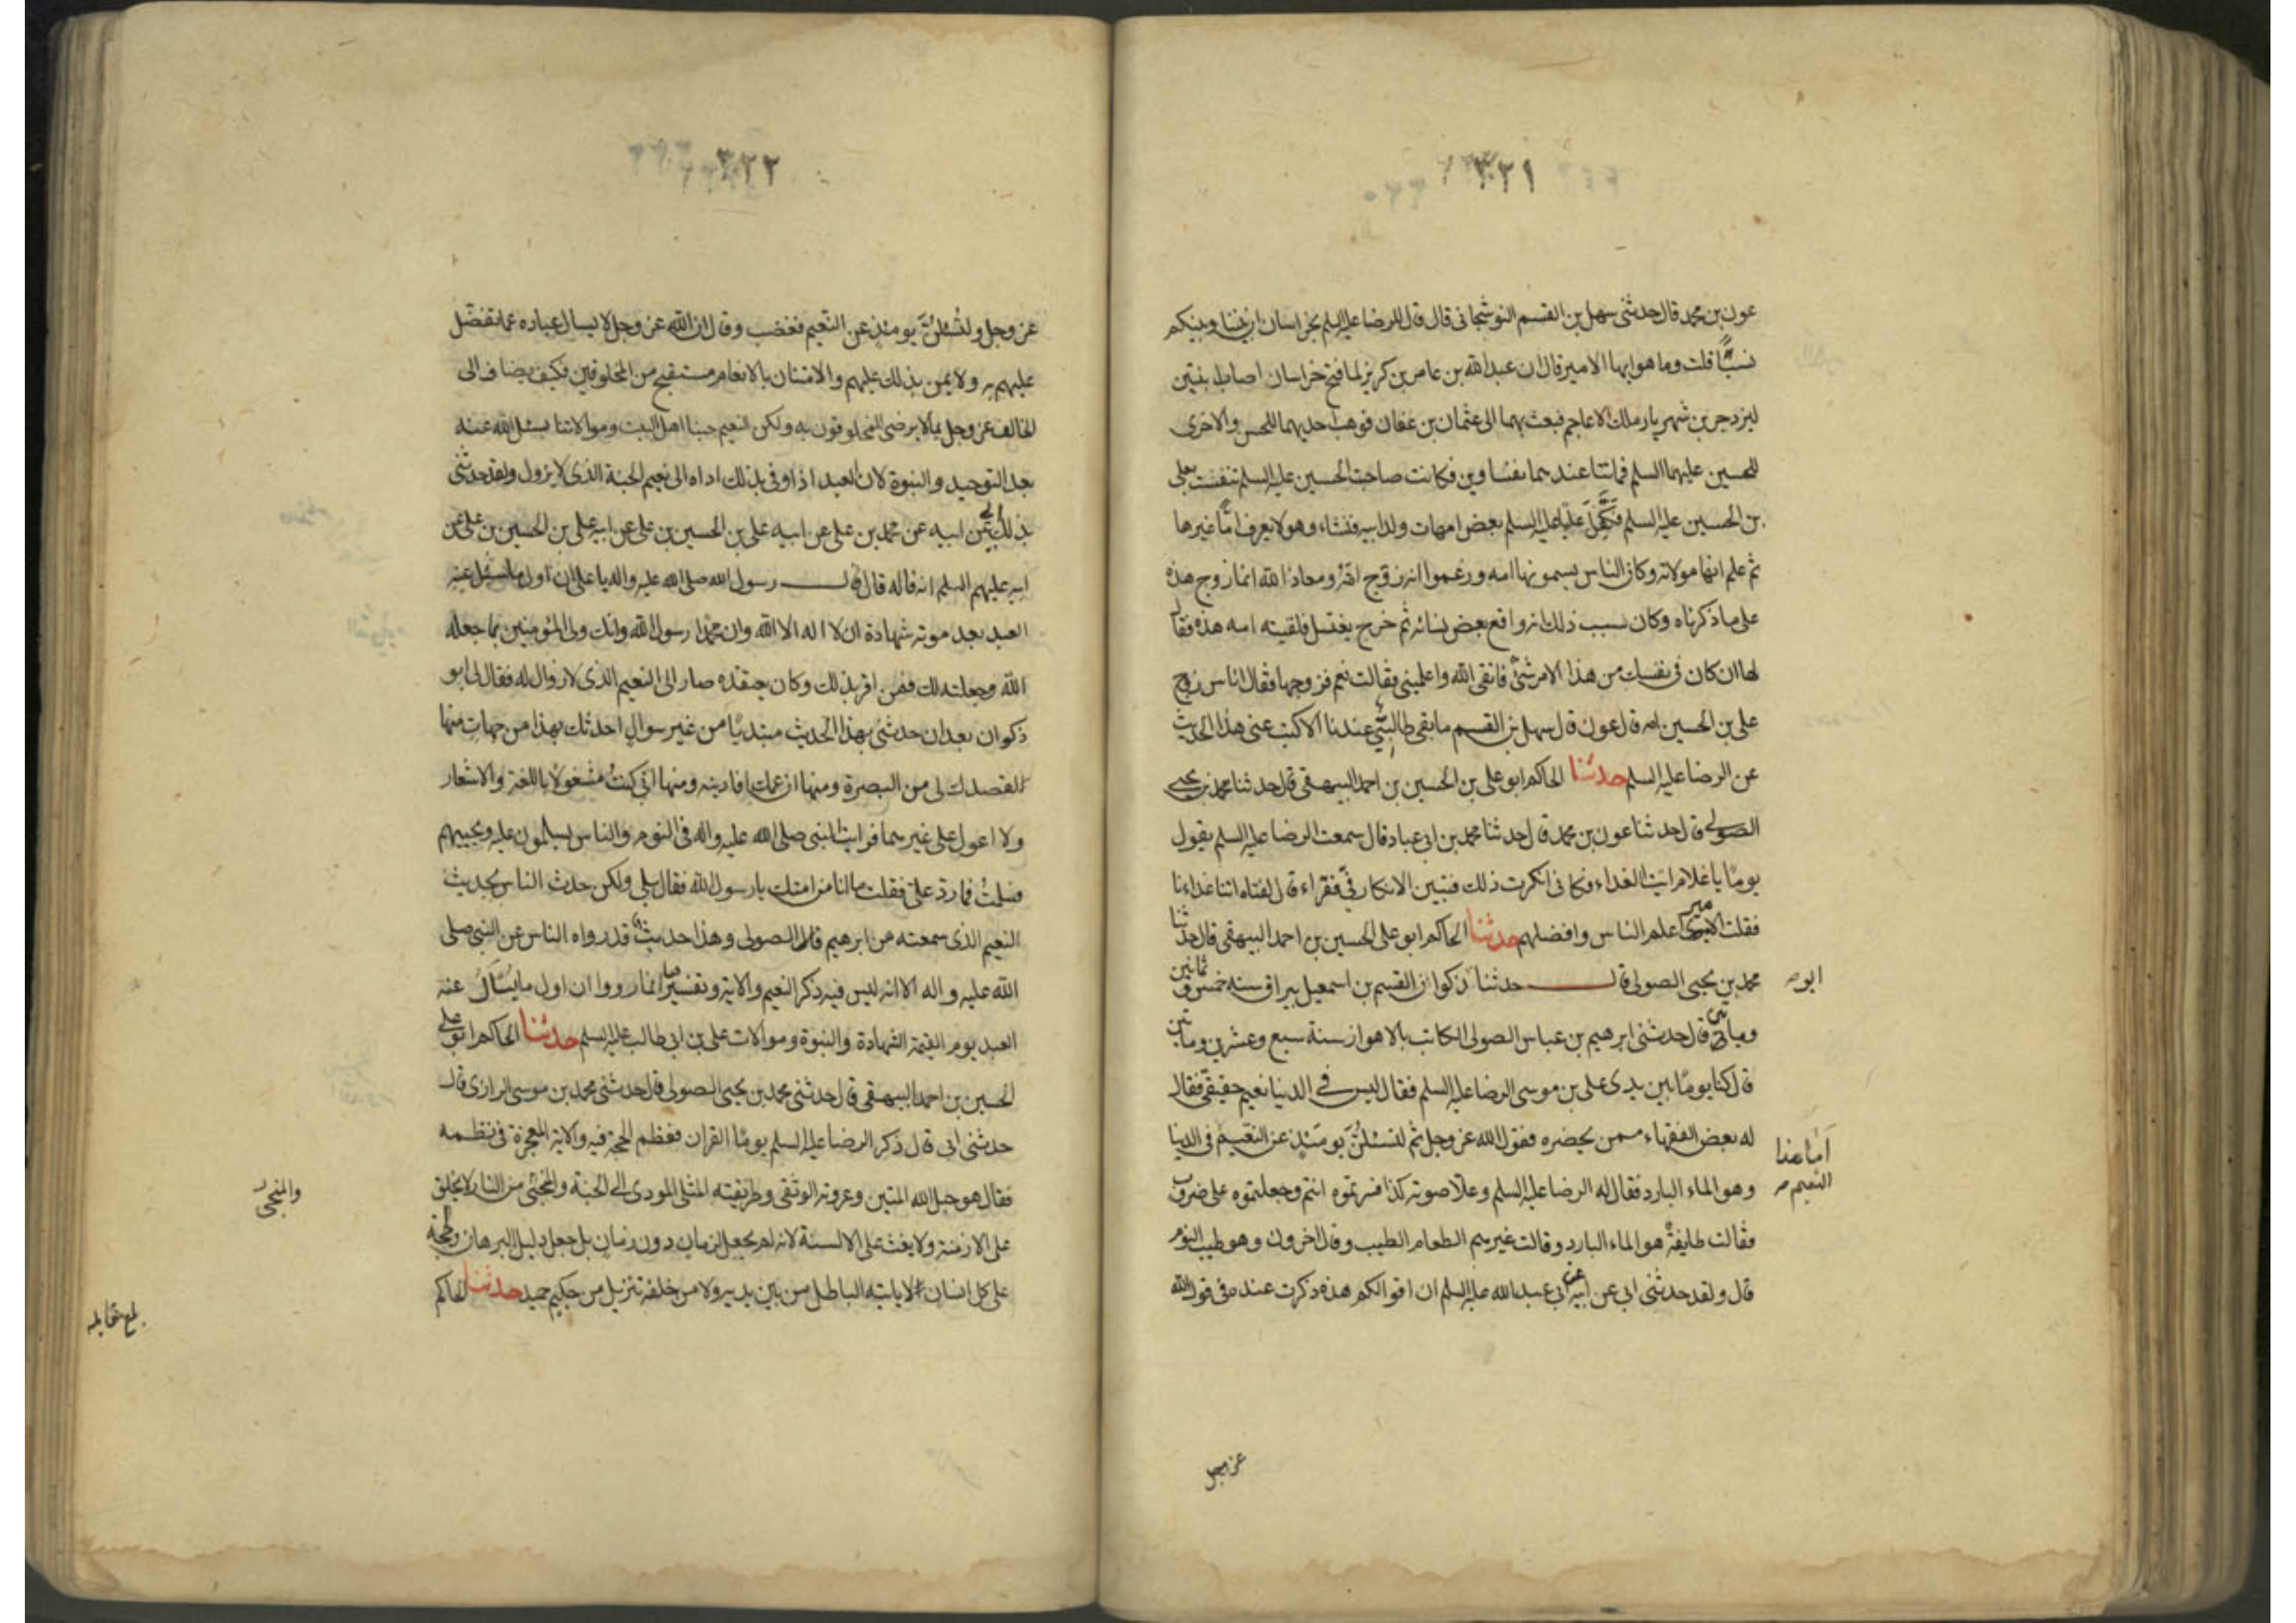 ٣٢١
عون بن محمد قال حدثنى سهل بن القسم النوشجانى قال قال لى الرضا عليه السلم بخراسان ان بيننا وبينكم
نسبًا قلت وما هو ايها الامير قال ان عبد الله بن عامر بن كريز لما فتح خراسان اصاب ابنتين
ليزدجرد بن شهريار ملك الاعاجم فبعث بهما الى عثمان بن عفان فوهب احديهما للحسن والاخرى
للحسين عليهما السلم فماتتا عندهما نفساوين فكانت صاحبة الحسين عليه السلم نفست بعلى
بن الحسين عليه السلم فكفل عليًا عليه السلم بعض امهات ولد ابيه فنشاء وهو لا يعرف امًا غيرها
ثم علم انها مولاته وكان الناس يسمونها امه وزعموا انه زوج امه ومعاذ الله انما زوج هذه
على ما ذكرناه وكان سبب ذلك انه واقع بعض نسائه ثم خرج يغتسل فلقيته امه هذه فقال
لها ان كان فى نفسك من هذا الامر شئ فاتقى الله واعلمينى فقالت نعم فزوجها فقال الناس زوج
على بن الحسين امه قال عون قال سهل بن القسم ما بقى طالبى عندنا الا كتب عنى هذا الحديث
عن الرضا عليه السلم حدثنا الحاكم ابو على بن الحسين بن احمد البيهقى قال حدثنا محمد بن يحيى
الصولى قال حدثنا عون بن محمد قال حدثنا محمد بن ابى عباد قال سمعت الرضا عليه السلم يقول
يومًا يا غلام ايت الغداء فكانى انكرت ذلك فتبين الانكار فىّ فقراء قال لفتاه اتنا غداءنا
فقلت الامير اعلم الناس وافضلهم حدثنا الحاكم ابو على الحسين بن احمد البيهقى قال حدثنا
محمد بن يحيى الصولى قال حدثنا ذكوان القسم بن اسمعيل بسيراف سنه خمس و ثمانين
ابو
وماتين قال حدثنى ابرهيم بن عباس الصولى الكاتب بالاهواز سنة سبع وعشرين وماتين
قال كنا يومًا بين يدى على بن موسى الرضا عليه السلم فقال ليس فى الدنيا نعيم حقيقى فقال
له بعض الفقهاء ممن يحضره فقول الله عز وجل ثم لتسئلن يومئذ عن النعيم فى الدنيا
اما هذا
النعيم
وهو الماء البارد فقال له الرضا عليه السلم وعلا صوته كذا فسرتموه انتم وجعلتموه على ضروب
فقالت طايفة هو الماء البارد وقالت غيرهم الطعام الطيب وقال اخرون وهو طيب النوم
قال ولقد حدثنى ابى عن ابيه عن ابى عبد الله عليه السلم ان اقوالكم هذه ذكرت عنده فى قول الله
عز وجل
٣٢٢
عز وجل ولتسئلن يومئذ عن النعيم فغضب وقال ان الله عز وجل لا يسال عباده عما تفضل
عليهم به ولا يمن بذلك عليهم والامتنان بالانعام مستقبح من المخلوقين فكيف يضاف الى
الخالق عز وجل ما لا يرضى المخلوقون به ولكن النعيم حبنا اهل البيت وموالاتنا يسئل الله عنه
بعد التوحيد والنبوة لان العبد اذا وفى بذلك اداه الى نعيم الجنة الذى لا يزول ولقد حدثنى
بذلك ابى عن ابيه عن محمد بن على عن ابيه على بن الحسين بن على عن ابيه على بن الحسين بن على عن
ابيه عليهم السلم انه قاله قال قال رسول الله صلى الله عليه واله يا على ان اول ما يسئل عنه
العبد بعد موته شهادة ان لا اله الا الله وان محمدًا رسول الله وانك ولى المؤمنين بما جعله
الله وجعلته لك فمن اقر بذلك وكان يعتقده صار الى النعيم الذى لا زوال له فقال لى ابو
ذكوان بعد ان حدثنى بهذا الحديث مبتديًا من غير سوال احدثك بهذا من جهات منها
لقصدك لى من البصرة ومنها ان عمك افادنيه ومنها انى كنت مشغولًا باللغة والاشعار
ولا اعول على غيرهما فرايت النبى صلى الله عليه واله فى النوم والناس يسلمون عليه ويجيبهم
فسلمت فما رد على فقلت ما انا من امتك يا رسول الله فقال بلى ولكن حدث الناس بحديث
النعيم الذى سمعته من ابرهيم قال الصولى وهذا حديث قد رواه الناس عن النبى صلى
الله عليه واله الا انه ليس فيه ذكر النعيم والاية وتفسيرها انما رووا ان اول ما يسال عنه
العبد يوم القيمة الشهادة والنبوة وموالات على بن ابى طالب عليه السلم حدثنا الحاكم ابو على
الحسين بن احمد البيهقى قال حدثنى محمد بن يحيى الصولى قال حدثنى محمد بن موسى الرازى قال
حدثنى ابى قال ذكر الرضا عليه السلم يومًا القران فعظم الحجة فيه والاية المعجزة فى نظمه
فقال هو حبل الله المتين وعروته الوثقى وطريقته المثلى المودى الى الجنة والمنجى من النار لا يخلق
والمنجى
على الازمنة ولا يغث على الالسنة لانه لم يجعل لزمان دون زمان بل جعل دليل البرهان والحجة
على كل انسان لا ياتيه الباطل من بين يديه ولا من خلفه تنزيل من حكيم حميد حدثنا الحاكم
بلغ مقابله